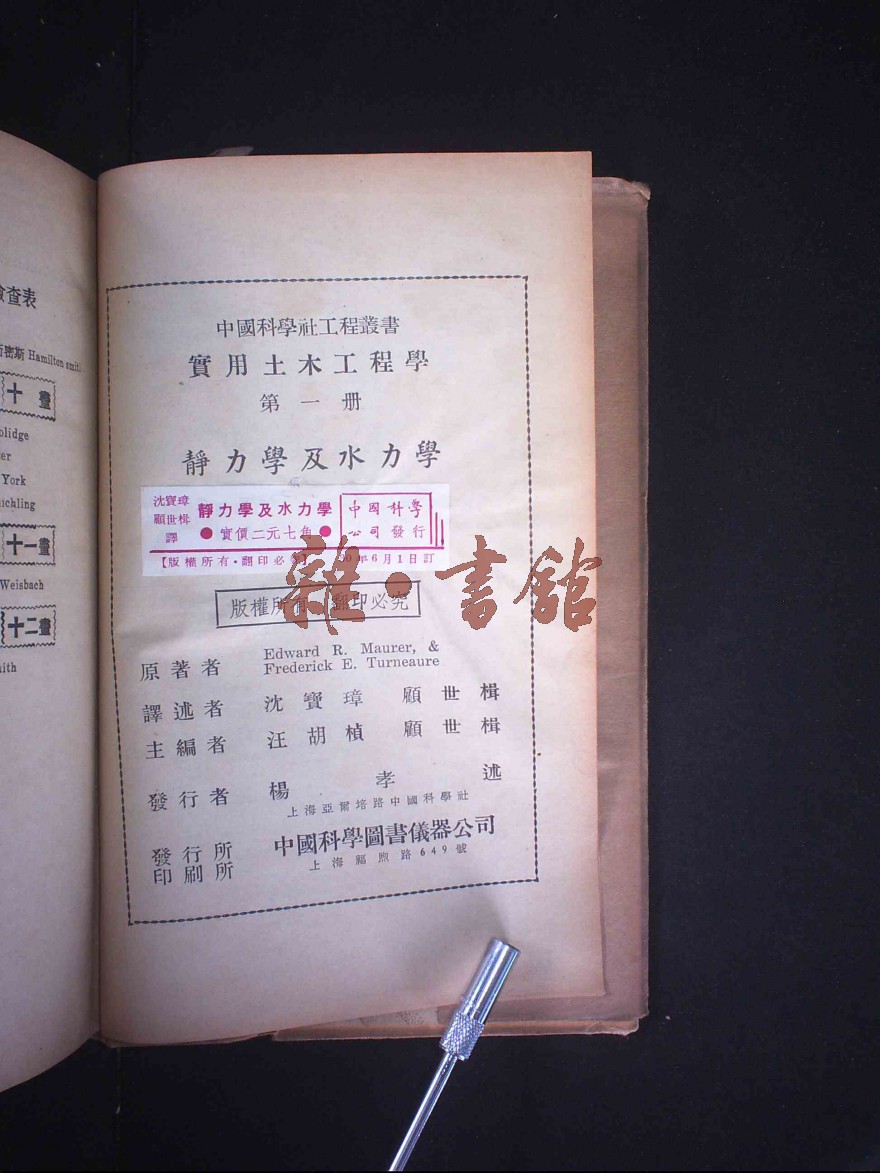 檢查表
密斯 Hamilton smith
十畫
olidge
er
York
ichling
十一畫
Weisbach
十二畫
ith
中國科學社工程叢書
實用土木工程學
第一册
靜力學及水力學
沈寶璋
顧世楫
譯
靜力學及水力學
●實價二元七角●
中國科學
公司發行
【版權所有·翻印必究】
年6月1日訂
雜·書館
版權所有 翻印必究
原著者 Edward R. Maurer, &
Frederick E. Turneaure
譯述者 沈寶璋 顧世楫
主編者 汪胡楨 顧世楫
發行者 楊孝述
上海亞爾培路中國科學社
發行所
印刷所
中國科學圖書儀器公司
上海福煦路649號